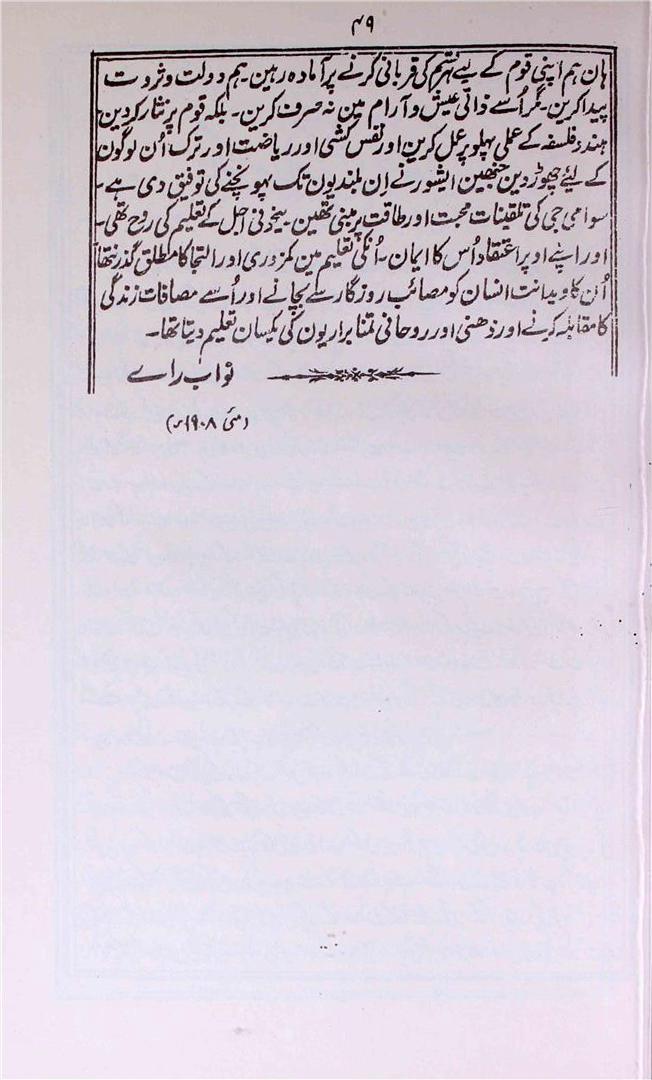 ۴۹
ہان ہم اپنی قوم کے لیے ہر قسم کی قربانی کرنے پر آمادہ رہین۔ ہم دولت و ثروت
پیدا کرین۔ مگر اُسے ذاتی عیش و آرام مین نہ صرف کرین۔ بلکہ قوم پر نثار کردین
ہندو فلسفہ کے عملی پہلو پر عمل کرین اور نفس کشی اور ریاضت اور ترک اُن لوگون
کے لیٔے چھوڑ دین جنھین ایشور نے اِن بلندیون تک پہونچنے کی توفیق دی ہے۔
سوامی جی کی تلقینات محبت اور طاقت پر مبنی تھین۔ بیخوفی اُجل کے تعلیم کی روح تھی۔
اور اپنے اوپر اعتقاد اُس کا ایمان۔ اُنکی تعلیم مین کمزوری اور التجا کا مطلق گذر نتھا
اُن کا ویدانت انسان کو مصائب روزگار سے بچانے اور اُسے مصافات زندگی
کا مقابلہ کرنے اور ذھنی اور روحانی تمنا برآریون کی یکسان تعلیم دیتا تھا۔
نواب راے
(مئی ۱۹۰۸ء)